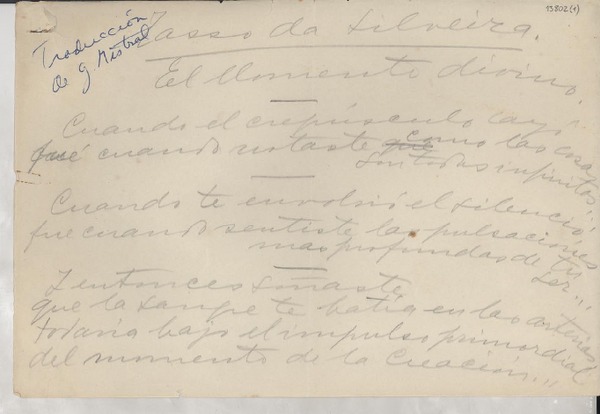 13802(1)
Traducción
de G Mistral
Tasso da Silveira.
El Momento divino.
Cuando el crepúsculo cayó
fué cuando notaste que como las cosas
son todas infinitas...
Cuando te envolvió el silencio
fue cuando sentiste las pulsaciones
mas profundas de tu
ser...
I entonces soñaste
que la sangre te batía en las arterias
todavía bajo el impulso primordial
del momento de la Creación...